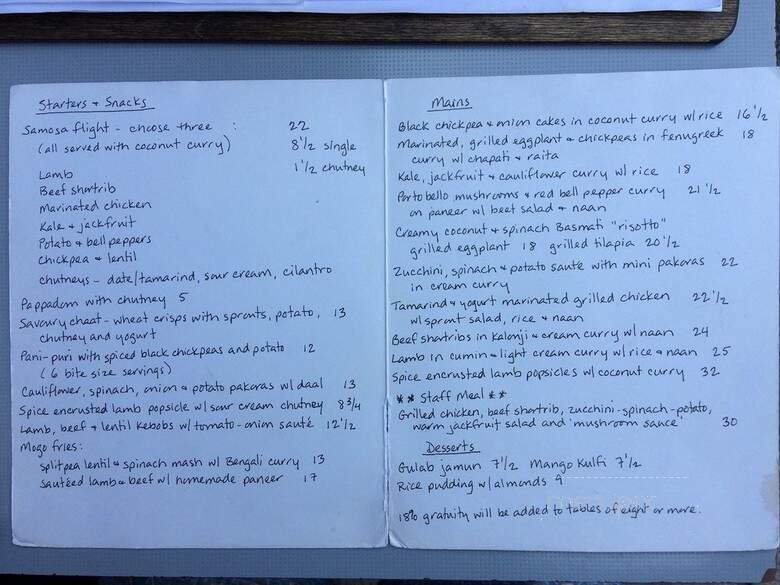 Starters + Snacks
Samosa flight - choose three : 22
(all served with coconut curry) 8 1/2 single
Lamb 1 1/2 chutney
Beef shortrib
Marinated chicken
Kale + jackfruit
Potato + bell peppers
Chickpea + lentil
chutneys - date/tamarind, sour cream, cilantro
Pappadom with chutney 5
Savoury chaat - wheat crisps with sprouts, potato, 13
chutney and yogurt
Pani-puri with spiced black chickpeas and potato 12
(6 bite size servings)
Cauliflower, spinach, onion + potato pakoras w/ daal 13
Spice encrusted lamb popsicle w/ sour cream chutney 8 3/4
Lamb, beef + lentil kebobs w/ tomato-onion sauté 12 1/2
Mogo fries:
splitpea lentil + spinach mash w/ Bengali curry 13
sautéed lamb + beef w/ homemade paneer 17
Mains
Black chickpea + onion cakes in coconut curry w/ rice 16 1/2
Marinated, grilled eggplant + chickpeas in fenugreek 18
curry w/ chapati + raita
Kale, jackfruit + cauliflower curry w/ rice 18
Portobello mushrooms + red bell pepper curry 21 1/2
on paneer w/ beet salad + naan
Creamy coconut + spinach Basmati "risotto"
grilled eggplant 18 grilled tilapia 20 1/2
Zucchini, spinach + potato sauté with mini pakoras 22
in cream curry
Tamarind + yogurt marinated grilled chicken 22 1/2
w/ sprout salad, rice + naan
Beef shortribs in kalonji + cream curry w/ naan 24
Lamb in cumin + light cream curry w/ rice + naan 25
Spice encrusted lamb popsicles w/ coconut curry 32
** Staff Meal **
Grilled chicken, beef shortrib, zucchini-spinach-potato,
warm jackfruit salad and 'mushroom sauce' 30
Desserts
Gulab jamun 7 1/2 Mango Kulfi 7 1/2
Rice pudding w/ almonds 9
18% gratuity will be added to tables of eight or more.